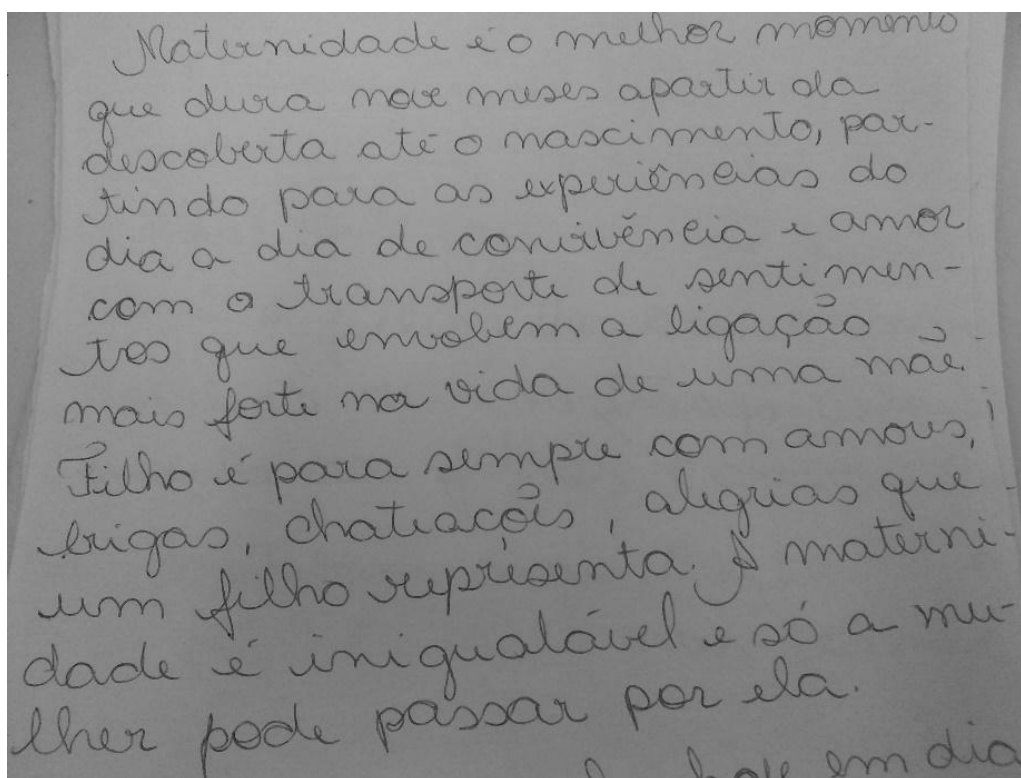 Maternidade é o melhor momento
que dura nove meses apartir da
descoberta até o nascimento, par-
tindo para as experiências do
dia a dia de convivência e amor
com o transporte de sentimen-
tos que envolvem a ligação
mais forte na vida de uma mãe.
Filho é para sempre com amores,
brigas, chateações, alegrias que
um filho representa. A materni-
dade é inigualável e só a mu-
lher pode passar por ela.
hoje em dia